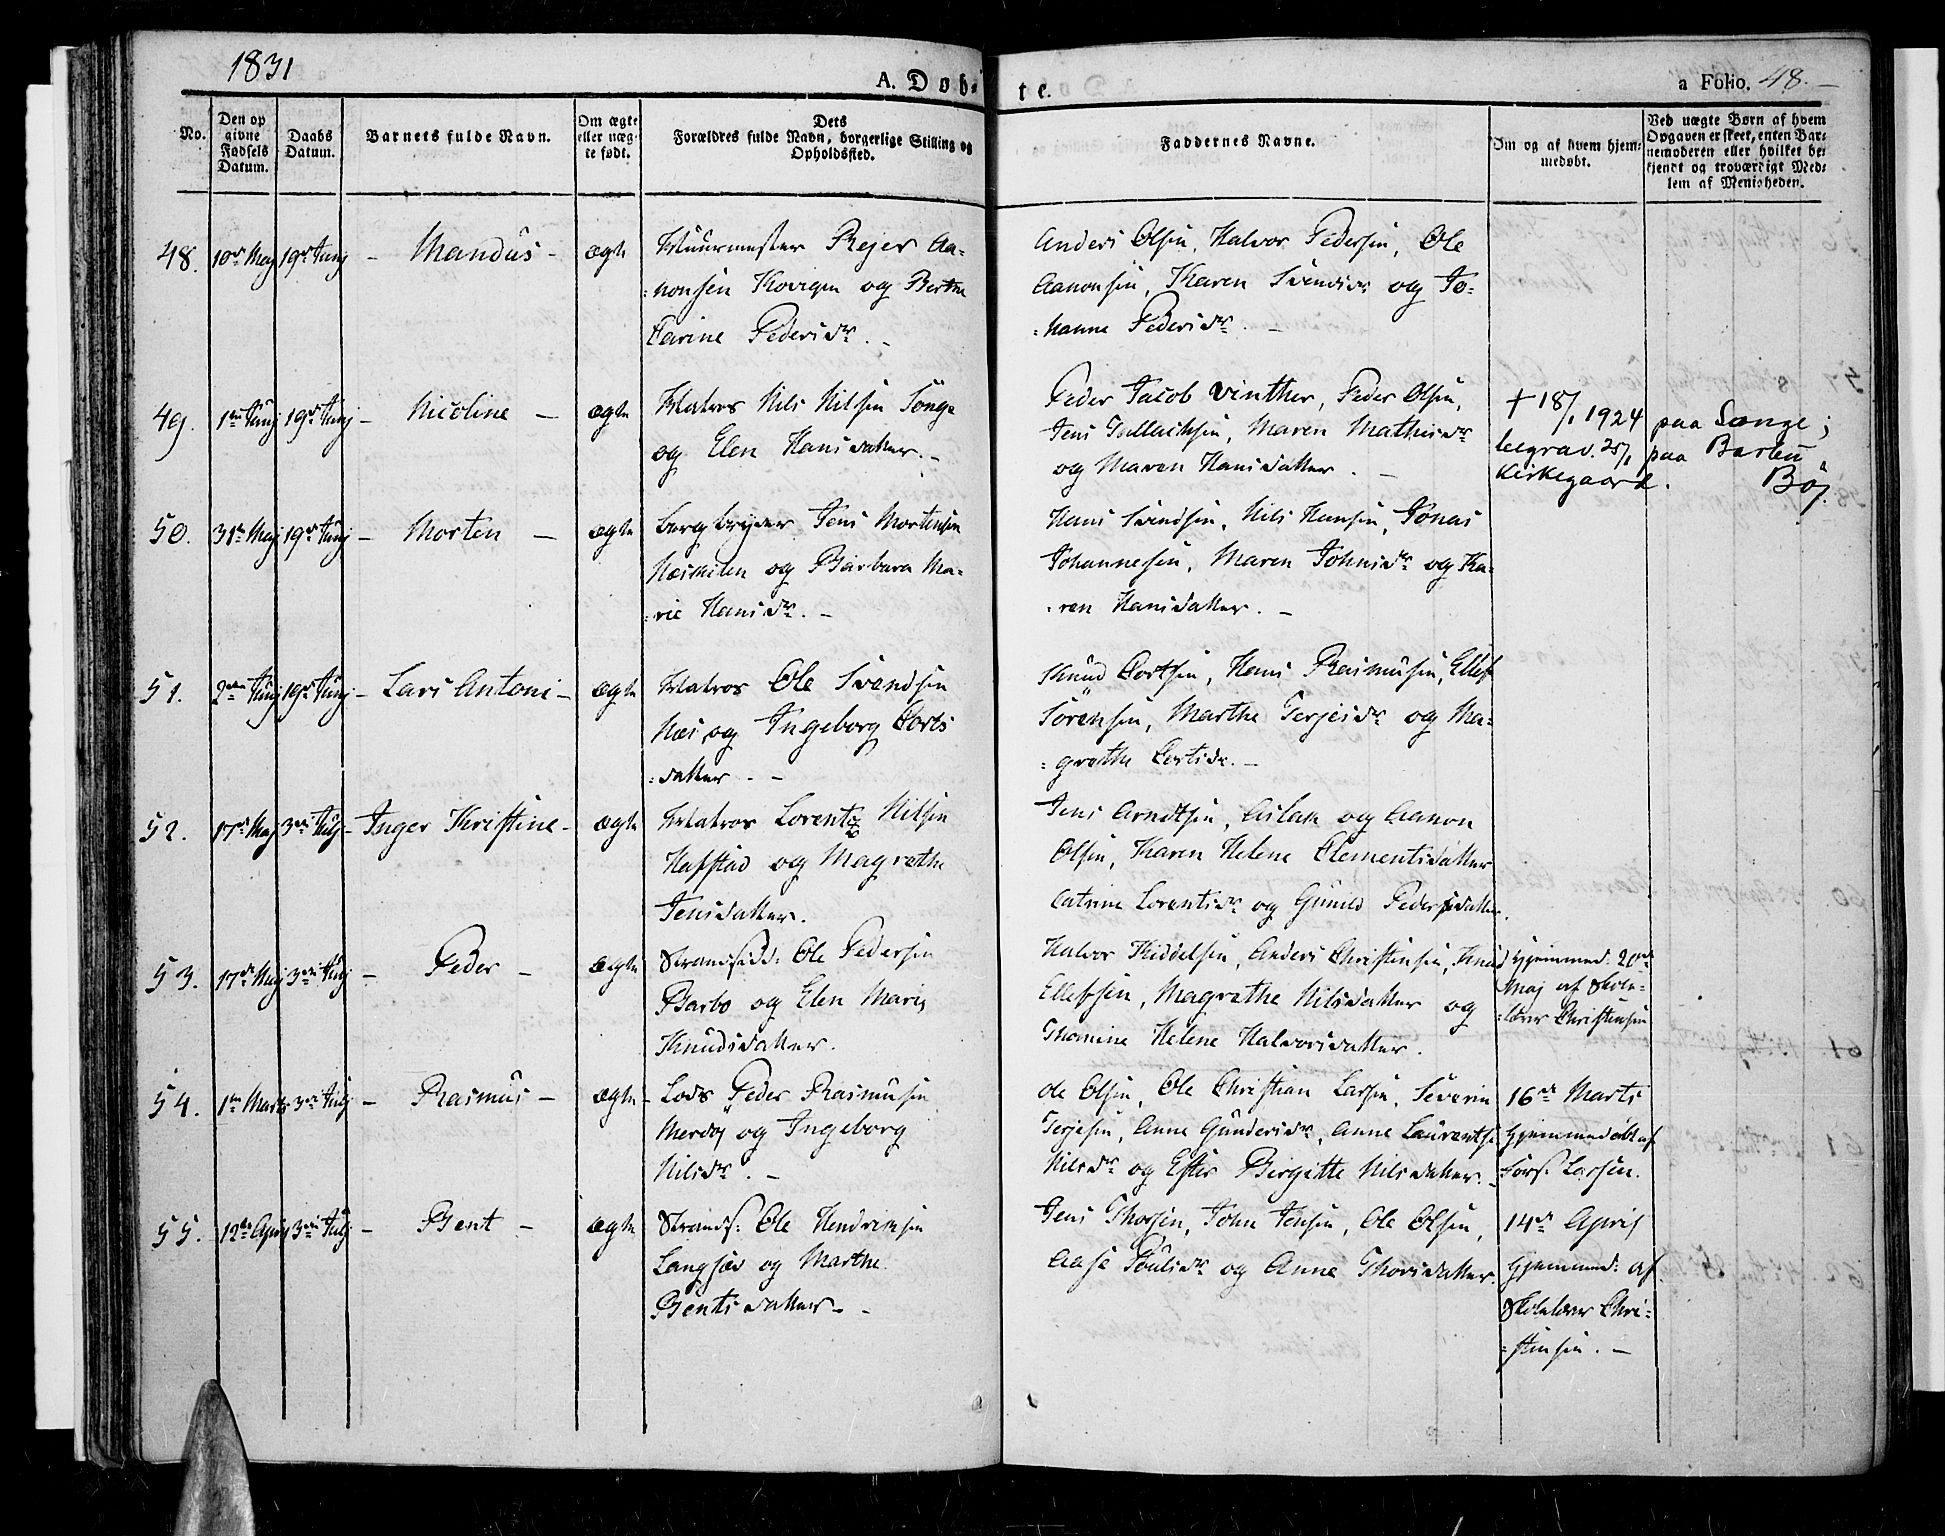 1831
A. Døb-
te.
a Folio. 48.
No.
Den op
givne
Fødsels
Datum.
Daabs
Datum.
Barnets fulde Navn.
Om ægte
eller uæg-
te født.
Dets
Forældres fulde Navn, borgerlige Stilling og
Opholdssted.
Faddernes Navne.
Om og af hvem hjem-
medøbt.
Ved uægte Børn af hvem
Opgaven er skeet, enten Bar-
nemoderen eller hvilket be-
kjendt og troværdigt Med-
lem af Menigheden.
48. 10de Maj 19de Junj - Mandus - ægte
Muurmester Rejer Aa-
=nonsen Kovigen og Berthe
Carine Pedersdr. -
Anders Olsen, Halvor Pedersen, Ole
Aanonsen, Karen Svendsdr og Jo-
=hanne Pedersdr. -
49. 1ste Junj 19de Junj - Nicoline - ægte
Matros Nils Nilsen Songe
og Elen Hansdatter. -
Peder Jacob Vinther, Peder Olsen,
Jens Tallachsen, Maren Mathisdr
og Maren Hansdatter. -
+ 18/1 1924 paa Songe;
begrav. 25/1 paa Barbu
Kirkegaard. Böj.
50. 31te Maj 19de Junj - Morten - ægte
Bergbryder Jens Mortensen
Næskilen og Barbara Ma-
=rie Hansdr. -
Hans Svendsen, Nils Hansen, Jonas
Johannesen, Maren Johnsdr og Ka-
=ren Hansdatter. -
51. 2den Junj 19de Junj - Lars Antoni - ægte
Matros Ole Svendsen
Næs og Ingeborg Corts
=datter. -
Knud Cortsen, Hans Rasmusen, Ellef
Sørensen, Marthe Terjesdr og Ma-
=grethe Cortsdr. -
52. 17de Maj 3die Julj - Inger Kristine - ægte
Matros Lorentz Nilsen
Hafstad og Magrethe
Jensdatter.
Jens Arndtsen, Aslak og Aanon
Olsen, Karen Helene Clementsdatter
Catrine Lorentsdr og Gunild Pedersdatter.
53. 17de Maj 3die Julj - Peder - ægte
Strandsidd: Ole Pedersen
Barbo og Elen Marie
Knudsdatter.
Halvor Kiddelsen, Anders Christensen, Knud
Ellefsen, Magrethe Nilsdatter og
Thomine Helene Halvorsdatter.
Hjemmed: 20de
Maj af Skole-
=lærer Christensen
54. 1ste Marts 3die Julj - Rasmus - ægte
Lods Peder Rasmusen
Merdøj og Ingeborg
Nilsdr. -
Ole Olsen, Ole Christian Larsen, Severin
Terjesen, Anne Gundersdr, Anne Laurentse
Nilsdr og Ester Birgitte Nilsdatter. -
16de Marts
hjemmedøbt af
Lars Larsen.
55. 12te April 3die Julj - Bent - ægte
Strands: Ole Hendriksen
Langsæv og Marthe
Bentsdatter. -
Jens Thorsen, John Jensen, Ole Olsen,
Aase Poulsdr og Anne Thorsdatter.
14de April
hjemmed: af
Skolelærer Chri-
=stensen. -